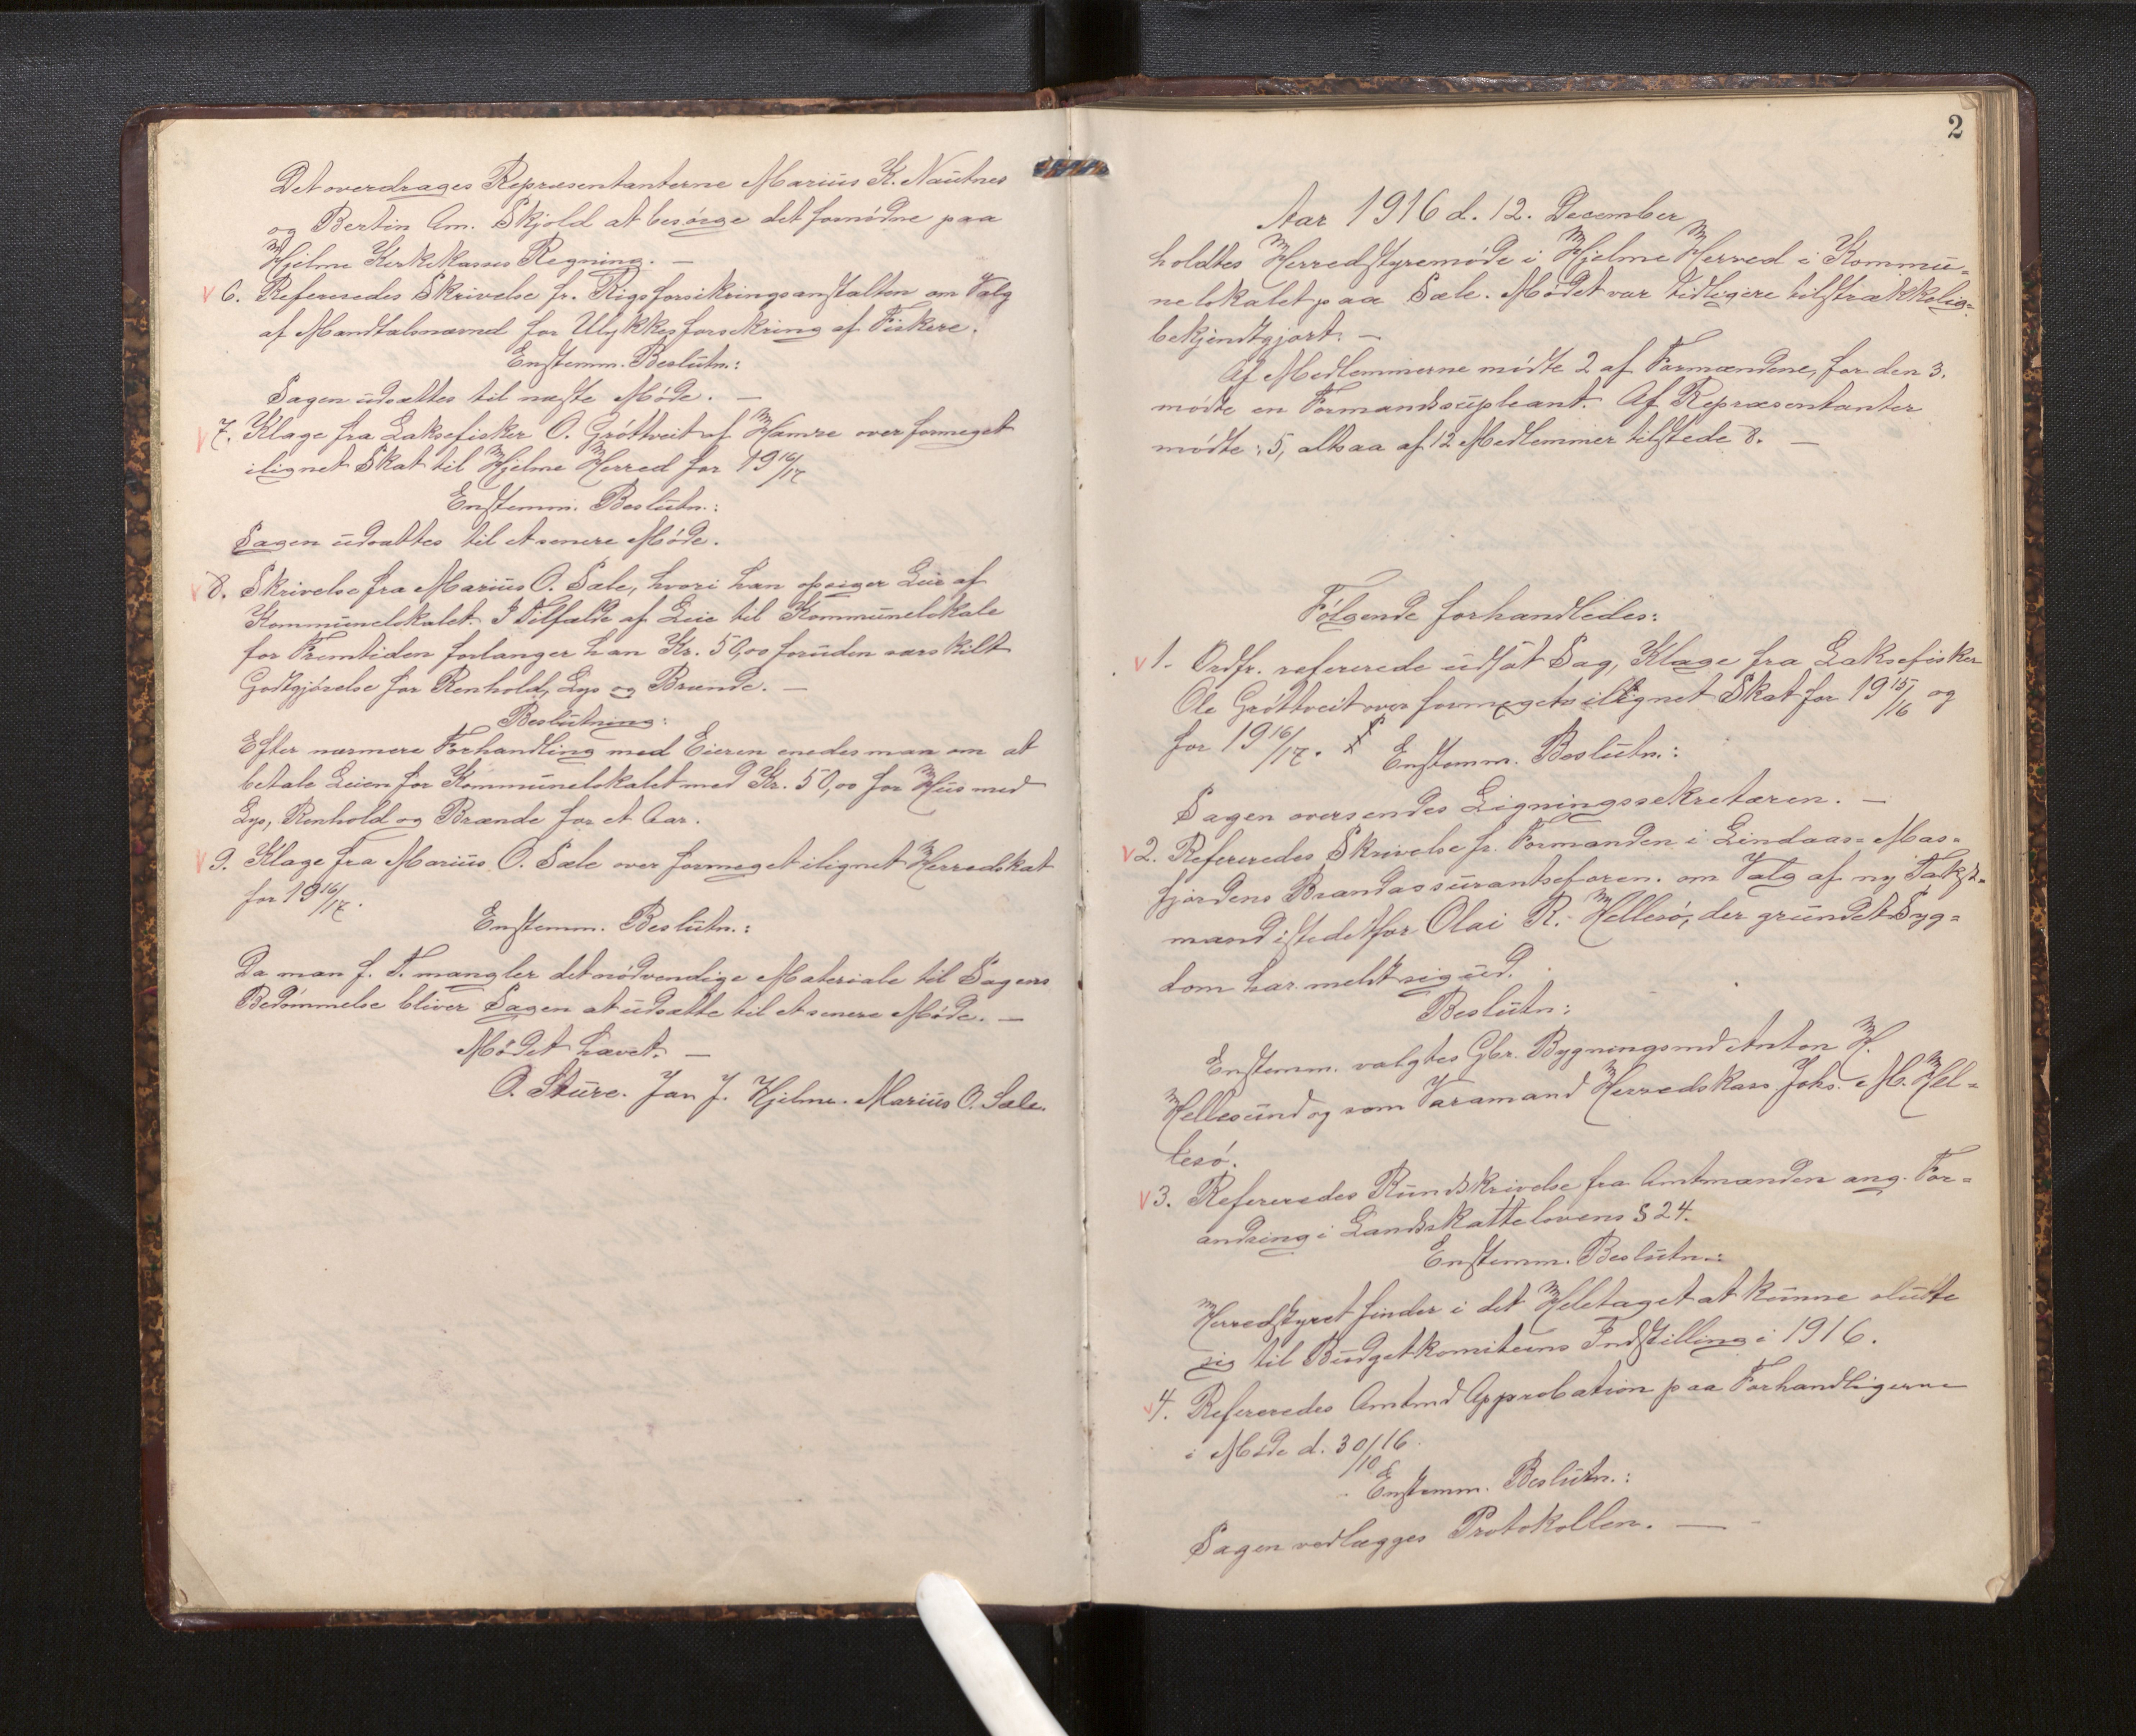 Det overdrages Repræsentanterne Marius K. Nautnes
og Bertin Am. Skjold at besørge det fornødne paa
Hjelme Kirkekasses Regning. —
6. Refereredes Skrivelse fr. Rigsforsikringsanstalten om Valg
af Mandtalsnævnd for Ulykkesforsikring af Fiskere.
Enstemm. Beslutn.:
Sagen udsættes til næste Møde. —
7. Klage fra Laksefisker O. Grøttveit af Hamre over formeget
ilignet Skat til Hjelme Herred for 1916/17
Enstemm. Beslutn.:
Sagen udsættes til et senere Møde.
8. Skrivelse fra Marius O. Sæle, hvori han opsiger Leie af
Kommunelokalet. I Tilfælde af Leie til Kommunelokale
for Fremtiden forlanger han Kr. 50,00 foruden særskilt
Godtgjørelse for Renhold, Lys og Brænde. —
Beslutning:
Efter nærmere Forhandling med Eieren enedes man om at
betale Leien for Kommunelokalet med Kr. 50,00 for Hus med
Lys, Renhold og Brænde for et Aar.
9. Klage fra Marius O. Sæle over formeget ilignet Herredskat
for 1916/17.
Enstemm. Beslutn.:
Da man f. T. mangler det nødvendige Materiale til Sagens
Bedømmelse bliver Sagen at udsætte til et senere Møde. —
Mødet hævet. —
O. Sture. Jan J. Hjelme. Marius O. Sæle.
2
Aar 1916 d. 12. December
holdtes Herredstyremøde i Hjelme Herred i Kommu=
nelokalet paa Sæle. Mødet var tidligere tilstrækkelig=
bekjendtgjort. —
Af Medlemmerne mødte 2 af Formændene, for den 3.
mødte en Formandssupleant. Af Repræsentanter
mødte: 5, altsaa af 12 Medlemmer tilstede 8. —
Følgende forhandledes:
1. Ordfr. refererede udsat Sag, Klage fra Laksefisker
Ole Grøttveit over formeget ilignet Skat for 1915/16 og
for 1916/17. Enstemm. Beslutn.:
Sagen oversendes Ligningssekretæren. —
2. Refereredes Skrivelse fr. Formanden i Lindaas= Mas=
fjordens Brandassurantseforen. om Valg af ny Takst=
mand istedetfor Olai R. Hellesø, der grundet Syg=
dom har meldt sig ud.
Beslutn:
Enstemm. valgtes Gbr. Bygningsmd Anton H.
Hellesund og som Varamand Herredskass Johs. M. Hel=
lesø.
3. Refereredes Rundskrivelse fra Amtmanden ang. For=
andring i Landsskattelovens § 24.
Enstemm. Beslutn.:
Herredstyret finder i det Heletaget at kunne slutte
sig til Budgetkomiteens Indstilling i 1916.
4. Refereredes Amtmd Approbation paa Forhandligerne
i Møde d. 30/10 16.
Enstemm. Beslutn.:
Sagen vedlægges Protokollen. —